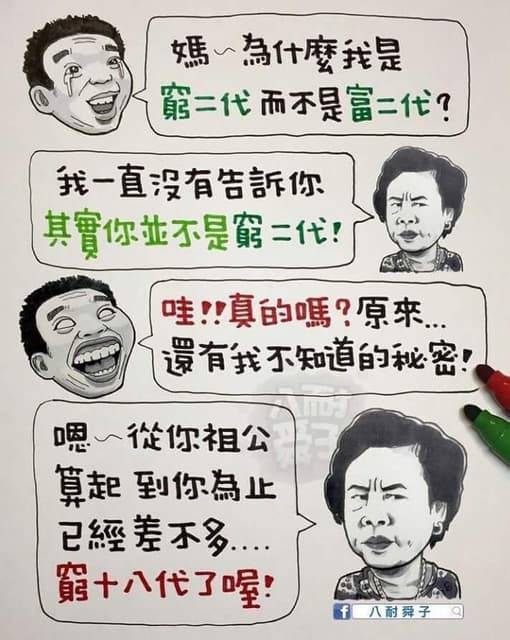 媽～為什麼我是
窮二代而不是富二代?
我一直沒有告訴你
其實你並不是窮二代!
哇!!真的嗎?原來...
還有我不知道的秘密!
八耐
舜子
嗯～從你祖公
算起 到你為止
已經差不多....
窮十八代了喔!
f 八耐舜子